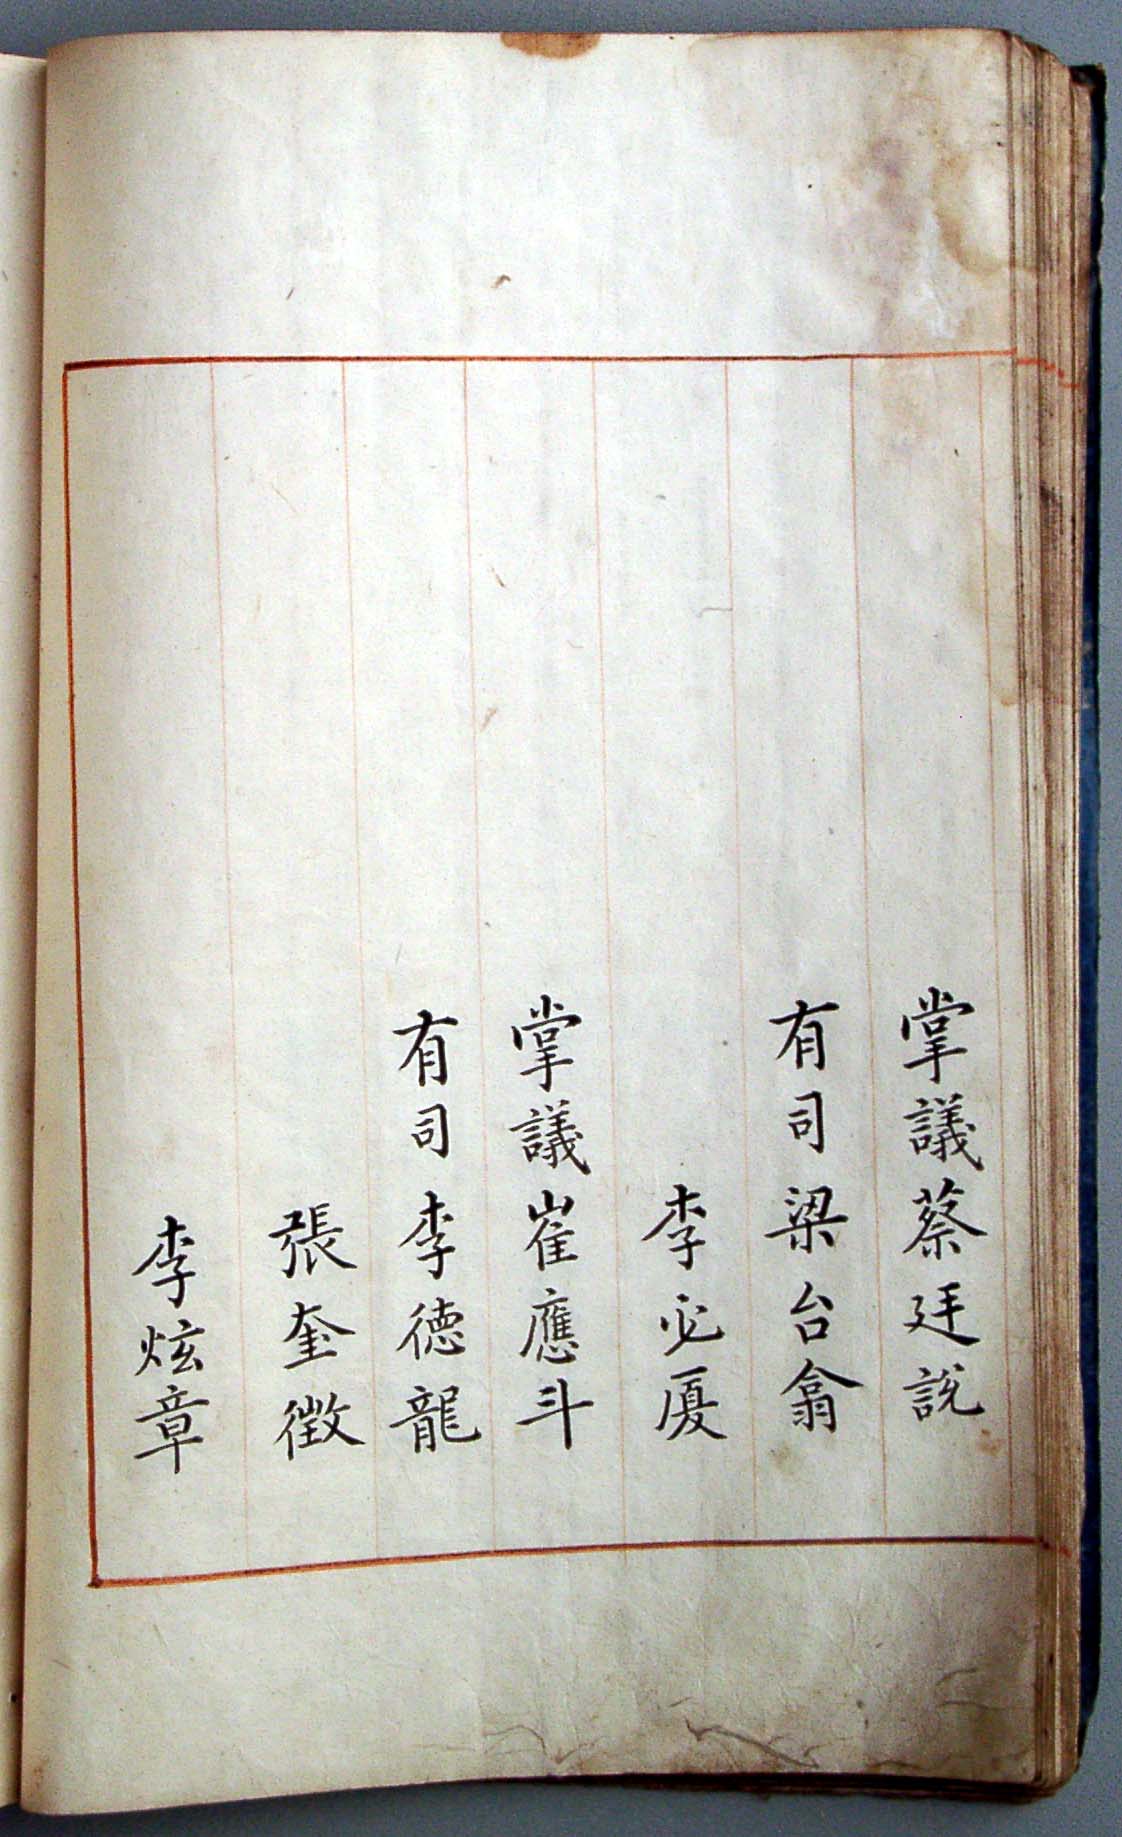 掌議蔡廷說
有司梁台翕
李必優
掌議崔應斗
有司李德龍
張奎徵
李炫章